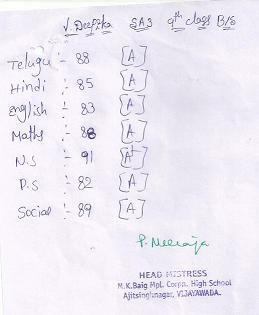 V. Deepika SA3 9th class B/S
Telugu :- 88 [A]
Hindi :- 85 [A]
English :- 83 [A]
Maths :- 88 [A]
N.S :- 91 [A+]
P.S :- 82 [A]
Social :- 89 [A]
P. Neeraja
HEAD MISTRESS
M.K.Baig Mpl. Corpn. High School
Ajitsinghnagar, VIJAYAWADA.